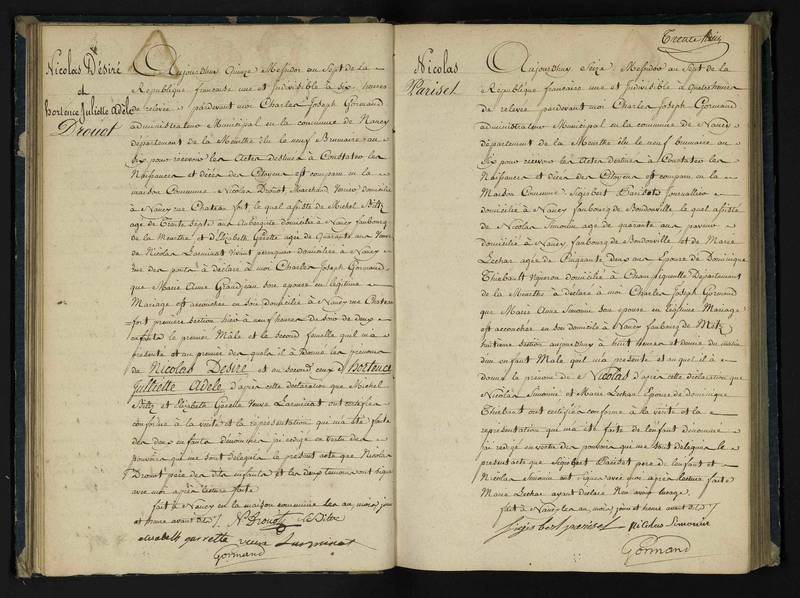 Nicolas Désiré
et
hortence Juliette Adèle
Drouot
Aujourd'huy Quinze Messidor an Sept de la
République française une et Indivisible à six heures
de relevée pardevant moi Charles Joseph Gormand
administrateur Municipal en la commune de Nancy
département de la Meurthe élu le neuf Brumaire an
Six pour recevoir les Actes destinés à Constater les
Naissances et décès des Citoyens est comparu en la
maison Commune Nicolas Drouot Marchand domicilié
à Nancy rue Chateau fort, le quel assisté de Michel Biltz
agé de Trente sept ans Aubergiste domicilié à Nancy faubourg
de la Meurthe et d'Elizabeth Garette agée de Quarante ans Veuve
de Nicolas Larminat Vivant perruquier domiciliée à Nancy
rue des ponts à déclaré à moi Charles Joseph Gormand
que Marie Anne Grandjean son epouse en légitime
Mariage est accouchée en son domicile à Nancy rue Chateau
fort première section hier à neuf heures du soir de deux
enfants le premier Mâle et le second femelle qu'il m'a
présenté et au premier des quels il a donné les prénoms
de Nicolas Désiré et au second ceux d'Hortence
Julliette Adèle d'après cette déclaration que Michel
Biltz et Elizabeth Garette Veuve Larminat ont certifiée
conforme à la vérité et la représentation qui m'a été faite
des deux enfants dénommés j'ai redigé en vertu des
pouvoirs qui me sont délégués le présent acte que Nicolas
Drouot père des dits enfants et les deux temoins ont signé
avec moi après lecture faite
fait à Nancy en la maison commune les an, mois, jour
et heure avant dits
N Drouot M Biltz
elisabeth garrette veuve Larminat
Gormand
Trente
Nicolas
Pariset
Aujourd'huy Seize Messidor an Sept de la
République française une et Indivisible à Quatre heures
de relevée pardevant moi Charles Joseph Gormand
administrateur Municipal en la commune de Nancy
département de la Meurthe élu le neuf brumaire an
Six pour recevoir les Actes destinés à Constater les
Naissances et décès des Citoyens est comparu en la
Maison Commune Sigisbert Pariset Journallier
domicilié à Nancy faubourg de Boudonville le quel assisté
de Nicolas Simonin agé de quarante ans paveur
domicilié à Nancy faubourg de Boudonville et de Marie
Lechar agée de Cinquante deux ans Epouse de Dominique
Thiebault Vigneron domicilié à Champigneulle Département
de la Meurthe à déclaré à moi Charles Joseph Gormand
que Marie Anne Simonin son epouse en légitime Mariage
est accouchée en son domicile à Nancy faubourg de Metz
huitième section aujourd'huy à huit heures et demie du matin
d'un enfant Male qu'il m'a présenté et au quel il à
donné le prénom de Nicolas d'après cette déclaration que
Nicolas Simonin et Marie Lechar Epouse de dominique
Thiebaut ont certifiée conforme à la vérité et la
représentation qui m'a été faite de l'enfant dénommé
j'ai redigé en vertu des pouvoirs qui me sont délégués le
present acte que Sigisbert Pariset pere de l'enfant et
Nicolas Simonin ont signés avec moi après lecture faite
Marie Lechar ayant déclaré n'en avoir l'usage.
fait à Nancy les an, mois, jour et heure avant dits
sigisbert pariset nicolas simonin
Gormand